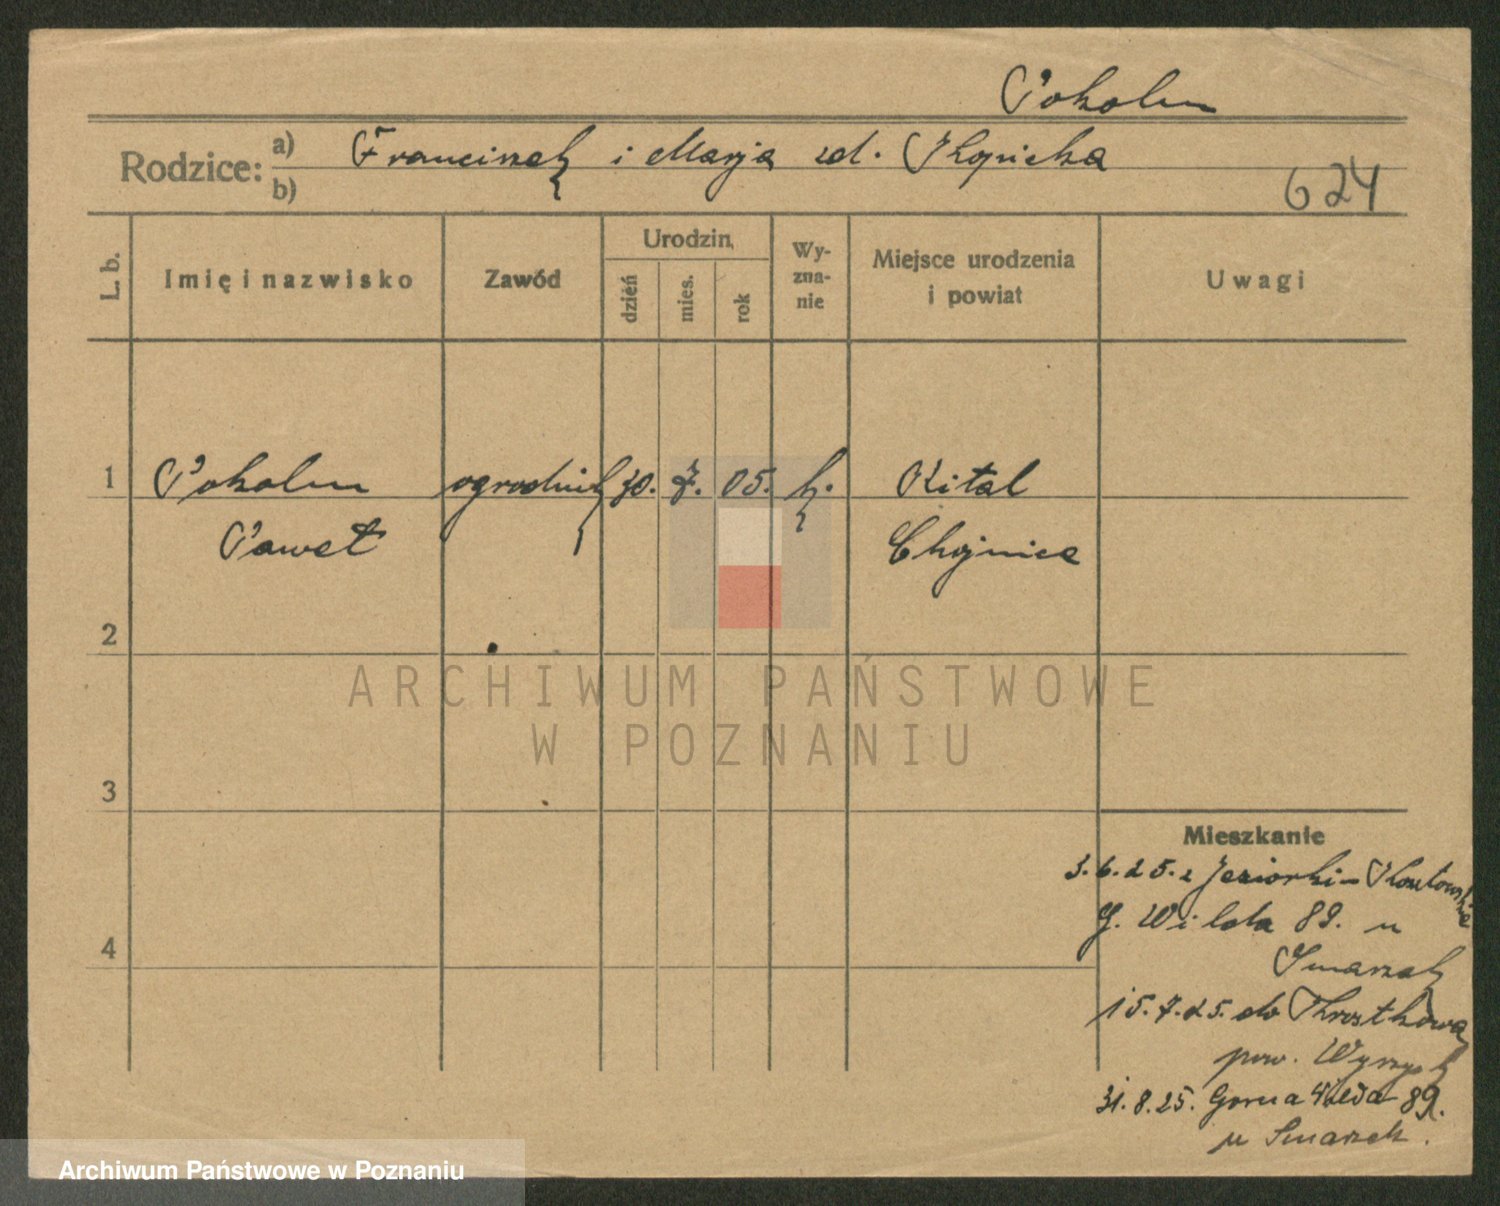 Pokolm
Rodzice: a) Franciszek i Marja zd.
b)
624
L. b.
Imię i nazwisko
Zawód
Urodzin
dzień
mies.
rok
Wy-
zna-
nie
Miejsce urodzenia
i powiat
Uwagi
1 Pokolm ogrodnik 30. 7. 05. k. Kital
Paweł Chojnice
2
ARCHIWUM PAŃSTWOWE
W POZNANIU
3
Mieszkanie
3.6.25. z Jeziorki
G. Wilda 89. u
Smarzek
4
15.7.25. do
pow. Wyrzysk
31.8.25. Gorna Wilda 89.
u Smarzek.
Archiwum Państwowe w Poznaniu